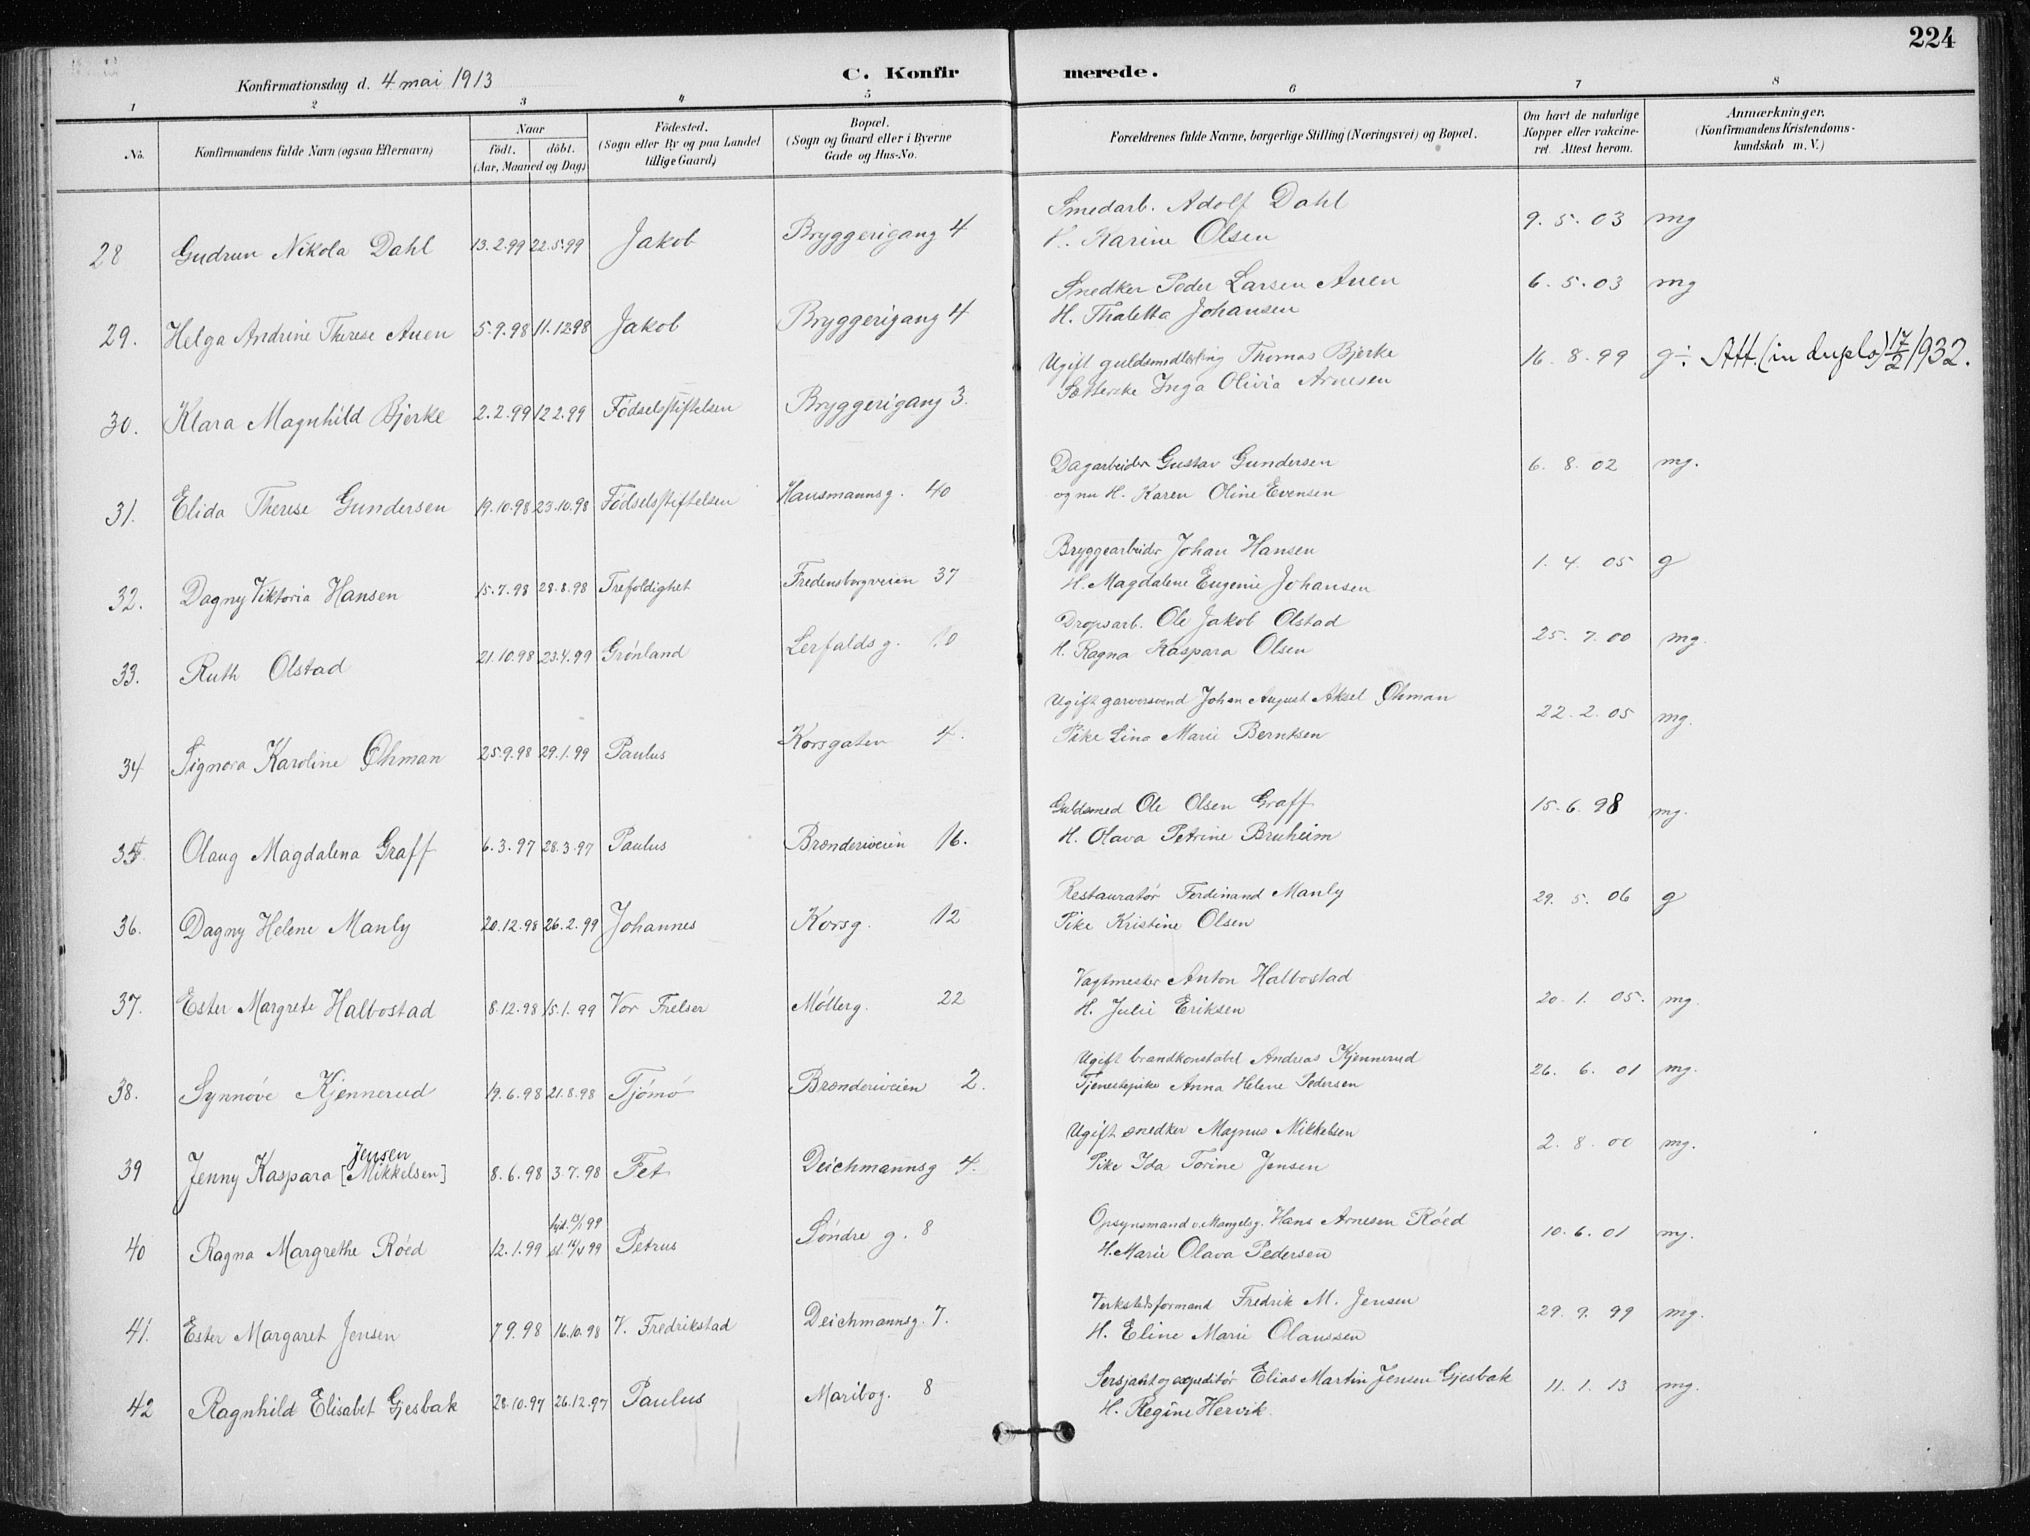 224
Konfirmationsdag d. 4 mai 1913
C. Konfirmerede.
1 2 3 4 5 6 7 8
No.
Konfirmandens fulde Navn (ogsaa Efternavn)
Naar
födt. döbt.
(Aar, Maaned og Dag)
Födested.
(Sogn eller By og paa Landet
tillige Gaard)
Bopæl.
(Sogn og Gaard eller i Byerne
Gade og Hus-No.
Forældrenes fulde Navne, borgerlige Stilling (Næringsvei) og Bopæl.
Om havt de naturlige
Kopper eller vakcine-
ret. Attest herom.
Anmærkninger.
(Konfirmandens Kristendoms-
kundskab m. V.)
28 Gudrun Nikola Dahl 13.2.99 22.5.99 Jakob Bryggerigang 4 Smedarb. Adolf Dahl 9.5.03 mg
H. Karine Olsen
29. Helga Andrine Therese Auen 5.9.98 11.12.98 Jakob Bryggerigang 4 Snedker Peder Larsen Auen 6.5.03 mg
H. Thaletta Johansen
30. Klara Magnhild Bjerke 2.2.99 12.2.99 Födselsstiftelsen Bryggerigang 3. Ugift guldsmedlærling Thomas Bjerke 16.8.99 g÷. Att. (in duplo) 17/2 1932.
Sætterske Inga Olivia Arnesen
31. Elida Therese Gundersen 19.10.98 23.10.98 Födselsstiftelsen Hausmannsg. 40 Dagarbeider Gustav Gundersen 6.8.02 mg.
og nu H. Karen Oline Evensen
32. Dagny Viktoria Hansen 15.7.98 28.8.98 Trefoldighet Fredensborgveien 37 Bryggearbeider Johan Hansen 1.4.05 g
H. Magdalene Eugenie Johansen
33. Ruth Olstad 21.10.98 23.4.99 Grönland Lerfaldsg. 10 Dropsarb. Ole Jakob Olstad 25.7.00 mg.
H. Ragna Kaspara Olsen
34 Signora Karoline Öhman 25.9.98 29.1.99 Paulus Korsgaten 4. Ugift garversvend Johan August Aksel Öhman 22.2.05 mg.
Pike Lina Marie Berntsen
35. Olaug Magdalena Graff 6.3.97 28.3.97 Paulus Brenderiveien 16. Guldsmed Ole Olsen Graff 15.6.98 mg.
H. Olava Petrine Bruheim
36. Dagny Helene Manly 20.12.98 26.2.99 Johannes Korsg. 12 Restauratör Ferdinand Manly 29.5.06 g
Pike Kristine Olsen
37. Ester Margrete Halbostad 8.12.98 15.1.99 Vor Frelser Möllerg. 22 Vagtmester Anton Halbostad 20.1.05. mg.
H. Julie Eriksen
38. Synnöve Kjennerud 19.6.98 21.8.98 Tjömö Brænderiveien 2. Ugift brandkonstabel Andreas Kjennerud 26.6.01 mg.
Tjenestepike Anna Helene Pedersen
39 Jenny Kaspara [Mikkelsen] Jensen 8.6.98 3.7.98 Fet Deichmannsg 4. Ugift snedker Magnus Mikkelsen 2.8.00 mg.
Pike Ida Torine Jensen
40 Ragna Margrethe Röed 12.1.99 hjd. 13/1 99 Petrus Söndre g. 8 Opsynsmand v. Mangelsg. Hans Arnesen Röed 10.6.01 mg.
H. Marie Olava Pedersen
41. Ester Margaret Jensen 7.9.98 16.10.98 V. Fredrikstad Deichmannsg. 7. Verkstedsformand Fredrik M. Jensen 29.9.99 mg.
H. Eline Marie Olaussen
42 Ragnhild Elisabet Gjesbak 28.10.97 26.12.97 Paulus Maribog. 8 Sersjant og expeditör Elias Martin Jensen Gjesbak 11.1.13 mg.
H. Regine Hervik.